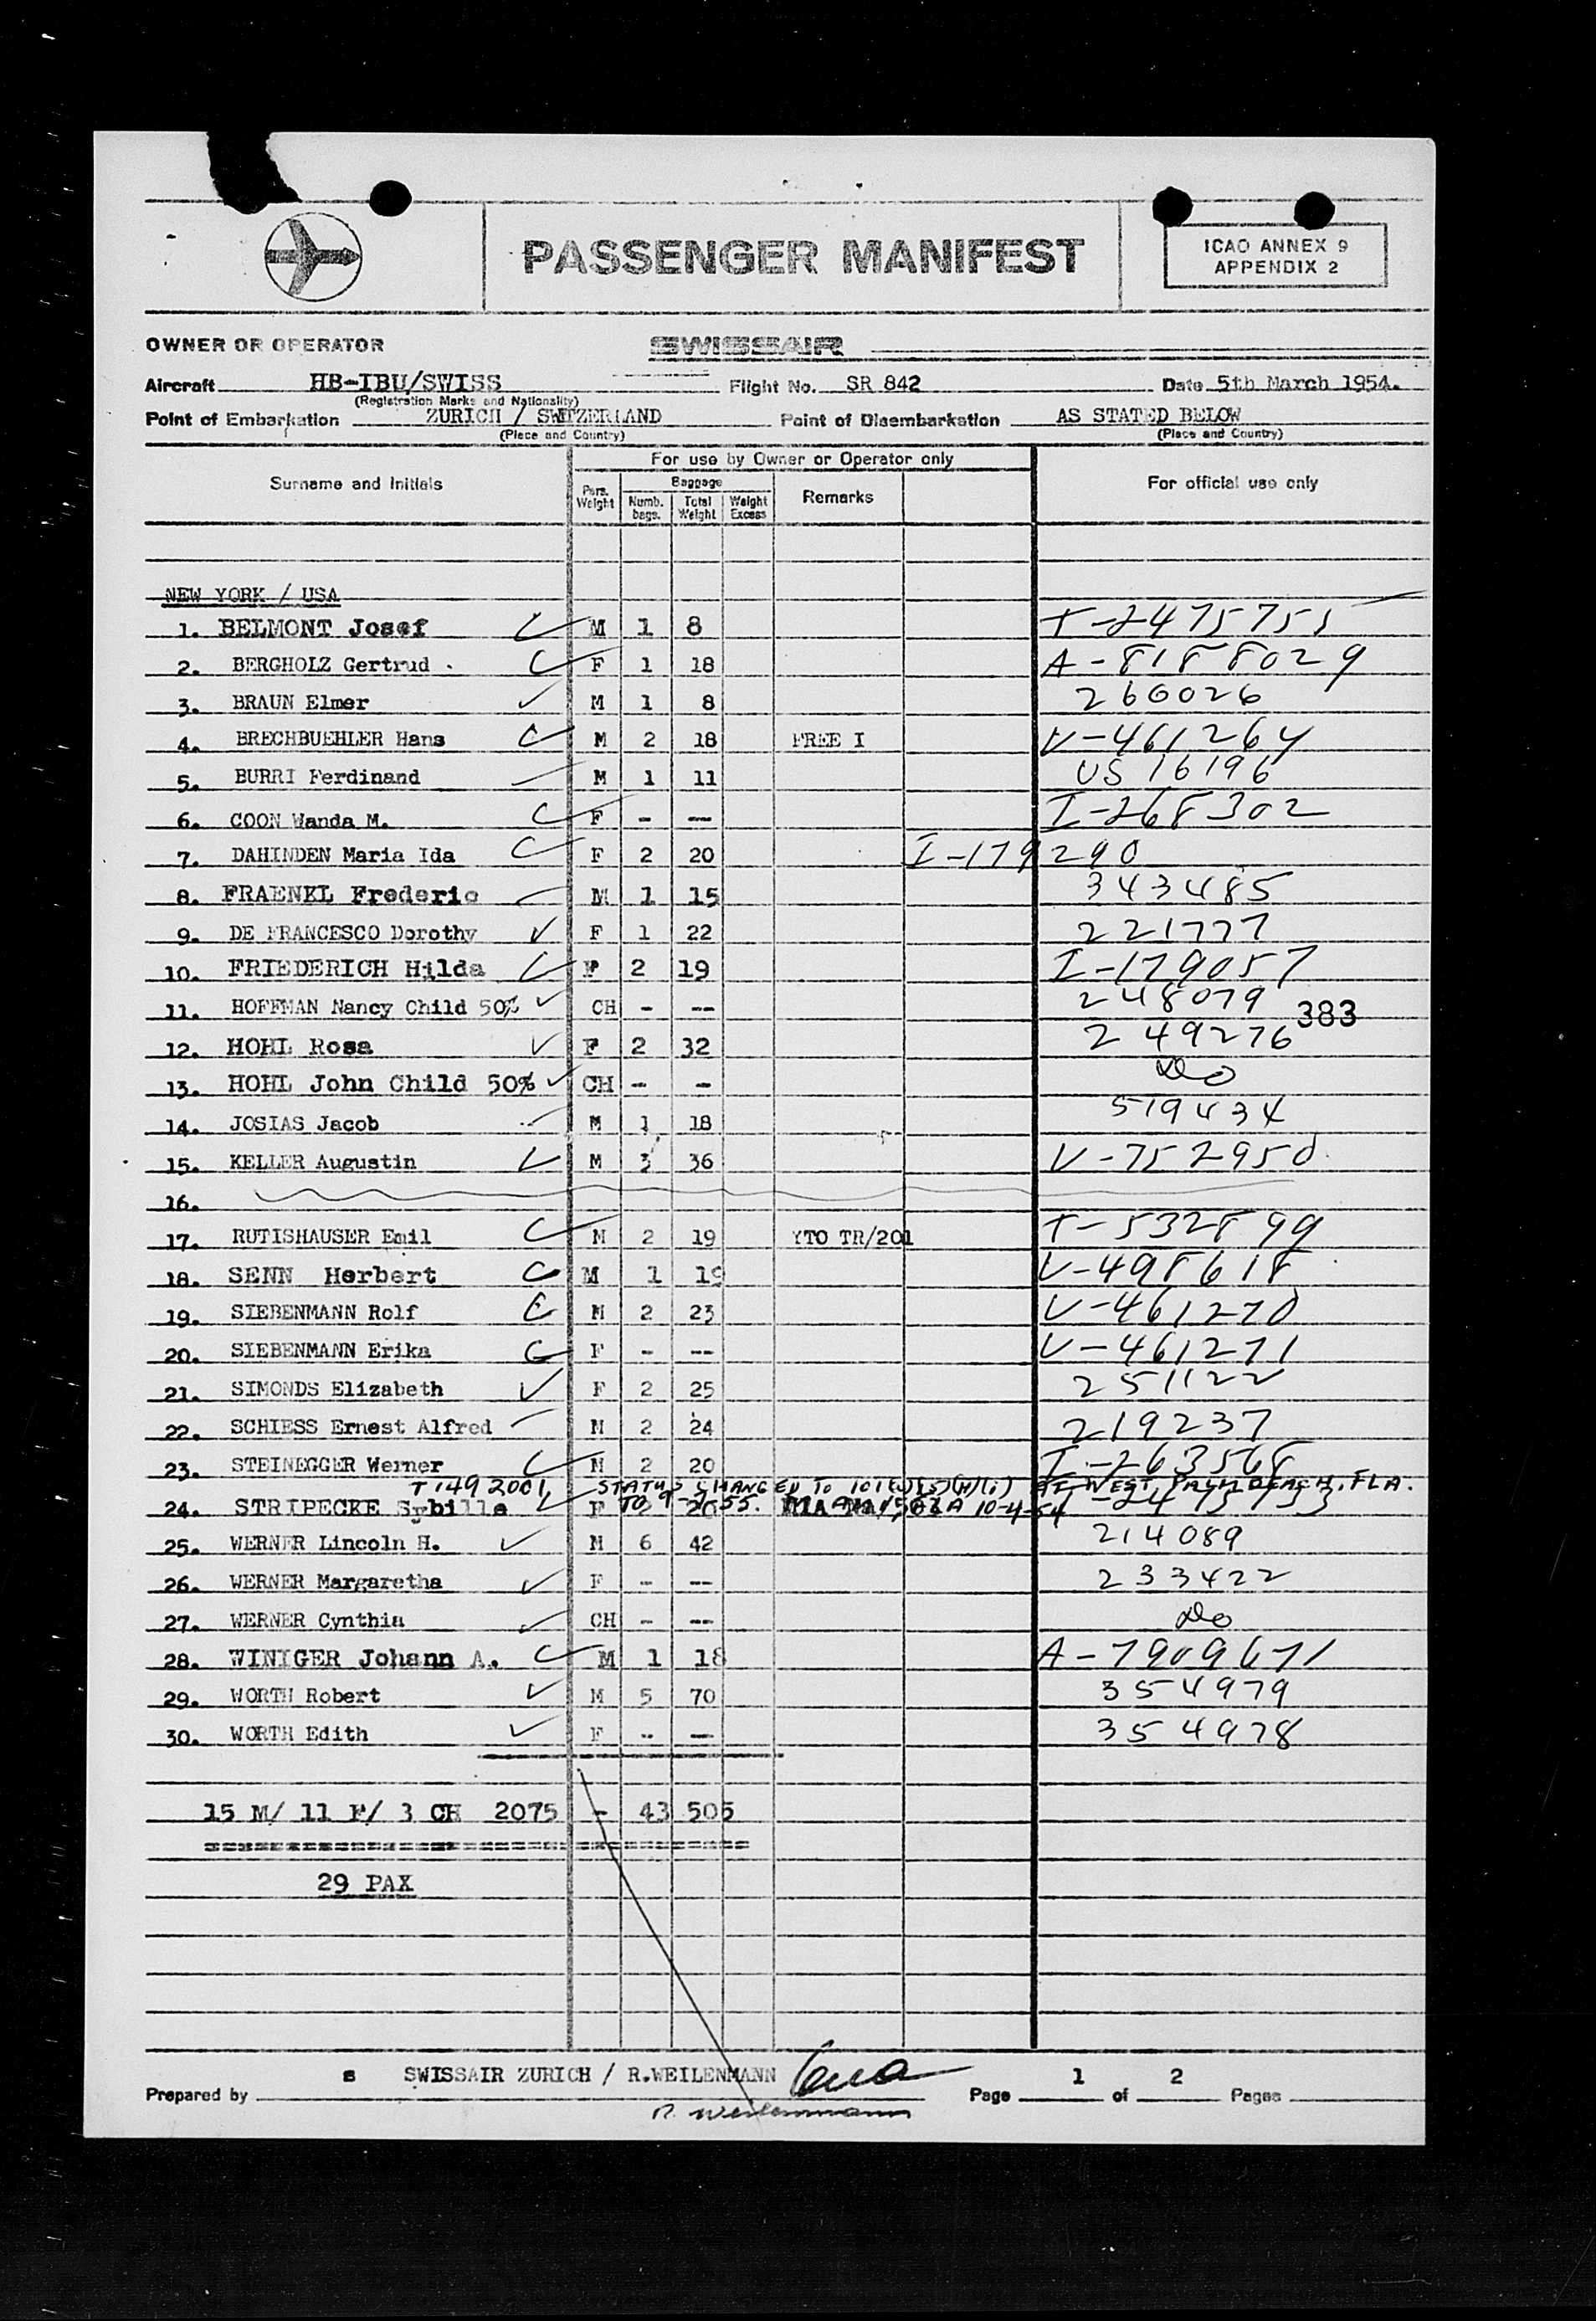 PASSENGER MANIFEST
ICAO ANNEX 9
APPENDIX 2
OWNER OR OPERATOR SWISSAIR
Aircraft HB-IBU/SWISS Flight No. SR 842 Date 5th March 1954.
(Registration Marks and Nationality)
Point of Embarkation ZURICH / SWITZERLAND Point of Disembarkation AS STATED BELOW
(Place and Country) (Place and Country)
For use by Owner or Operator only
Surname and Initials Pers. Weight Baggage Numb. bags. Total Weight Weight Excess Remarks For official use only
NEW YORK / USA
1. BELMONT Josef M 1 8 T-2475751
2. BERGHOLZ Gertrud F 1 18 A-8188029
3. BRAUN Elmer M 1 8 260026
4. BRECHBUEHLER Hans M 2 18 FREE I V-461264
5. BURRI Ferdinand M 1 11 US 16196
6. COON Wanda M. F - -- I-268302
7. DAHINDEN Maria Ida F 2 20 I-179290
8. FRAENKL Frederic M 1 15 343485
9. DE FRANCESCO Dorothy F 1 22 221777
10. FRIEDERICH Hilda F 2 19 I-179057
11. HOFFMAN Nancy Child 50% CH - -- 248079 383
12. HOHL Rosa F 2 32 249276
13. HOHL John Child 50% CH - - Do
14. JOSIAS Jacob M 1 18 519434
15. KELLER Augustin M 3 36 V-752950
16.
17. RUTISHAUSER Emil M 2 19 YTO TR/201 T-532899
18. SENN Herbert M 1 19 V-498618
19. SIEBENMANN Rolf M 2 23 V-461270
20. SIEBENMANN Erika F - -- V-461271
21. SIMONDS Elizabeth F 2 25 251122
22. SCHIESS Ernest Alfred M 2 24 219237
23. STEINEGGER Werner M 2 20 I-263568
T 1492001 STATUS CHANGED TO 101(a)(15)(H)(i) AT WEST PALM BEACH, FLA.
24. STRIPECKE Sybille F 2 20 10-4-54
25. WERNER Lincoln H. M 6 42 214089
26. WERNER Margaretha F - -- 233422
27. WERNER Cynthia CH - -- Do
28. WINIGER Johann A. M 1 18 A-7909671
29. WORTH Robert M 5 70 354979
30. WORTH Edith F - -- 354978
15 M/ 11 F/ 3 CH 2075 - 43 505
29 PAX
Prepared by s SWISSAIR ZURICH / R.WEILENMANN Page 1 of 2 Pages
R. Weilenmann